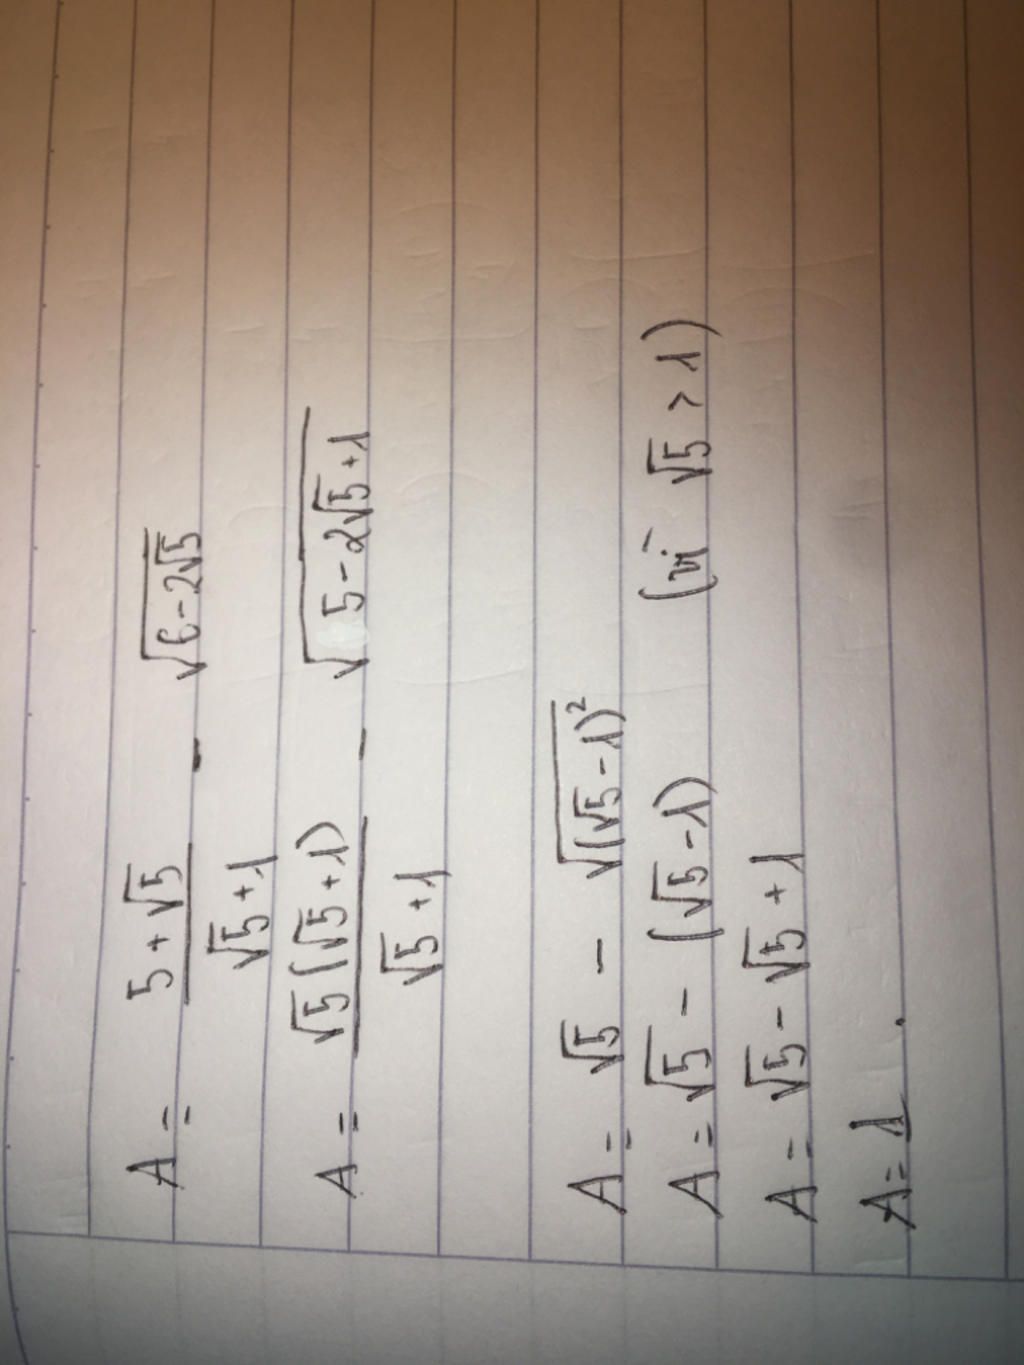 A = \frac{5+\sqrt{5}}{\sqrt{5}+1} - \sqrt{6-2\sqrt{5}}
A = \frac{\sqrt{5}(\sqrt{5}+1)}{\sqrt{5}+1} - \sqrt{5-2\sqrt{5}+1}
A = \sqrt{5} - \sqrt{(\sqrt{5}-1)^2}
A = \sqrt{5} - (\sqrt{5}-1) (vì \sqrt{5} > 1)
A = \sqrt{5} - \sqrt{5} + 1
A = 1.